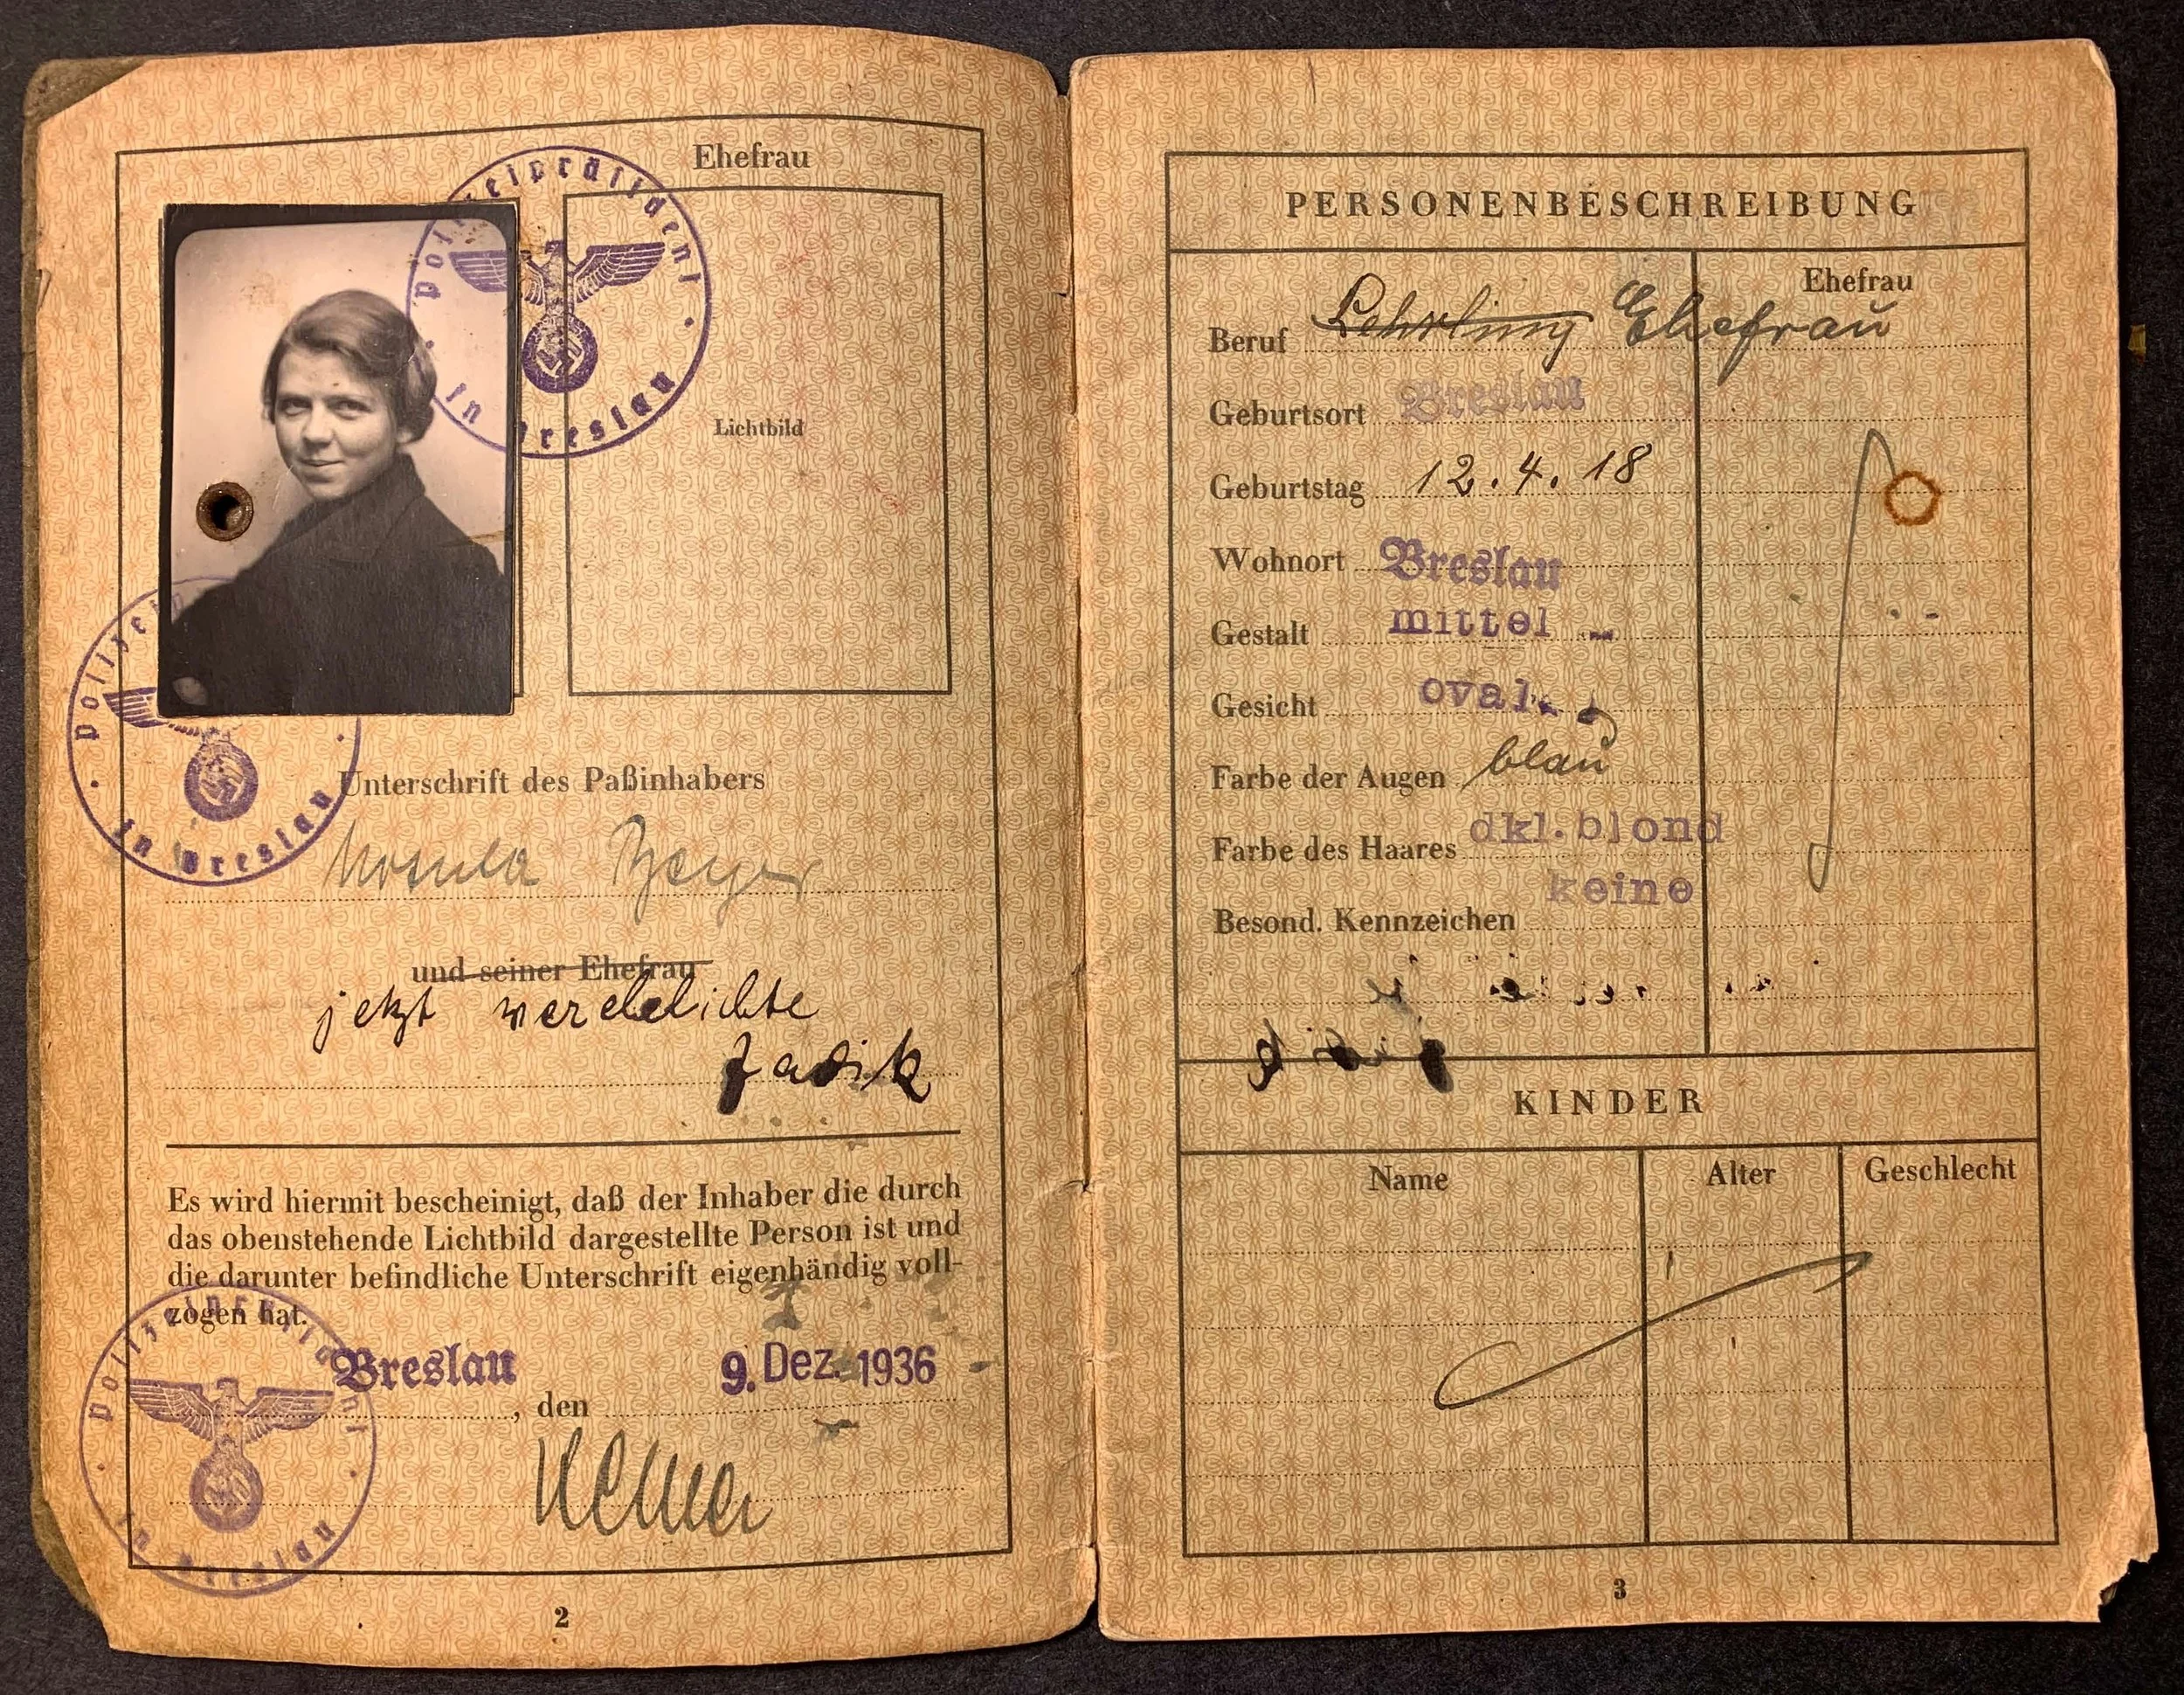 Ehefrau
Polizeipräsident
in Breslau
Lichtbild
Unterschrift des Paßinhabers
Ursula Beyer
in Breslau
und seiner Ehefrau
jetzt verehelichte
Zadik
Es wird hiermit bescheinigt, daß der Inhaber die durch
das obenstehende Lichtbild dargestellte Person ist und
die darunter befindliche Unterschrift eigenhändig voll-
zogen hat.
Breslau, den 9. Dez. 1936
in Breslau
2
PERSONENBESCHREIBUNG
Ehefrau
Beruf Lehrling Ehefrau
Geburtsort Breslau
Geburtstag 12.4.18
Wohnort Breslau
Gestalt mittel
Gesicht oval
Farbe der Augen blau
Farbe des Haares dkl.blond
Besond. Kennzeichen keine
KINDER
Name Alter Geschlecht
3